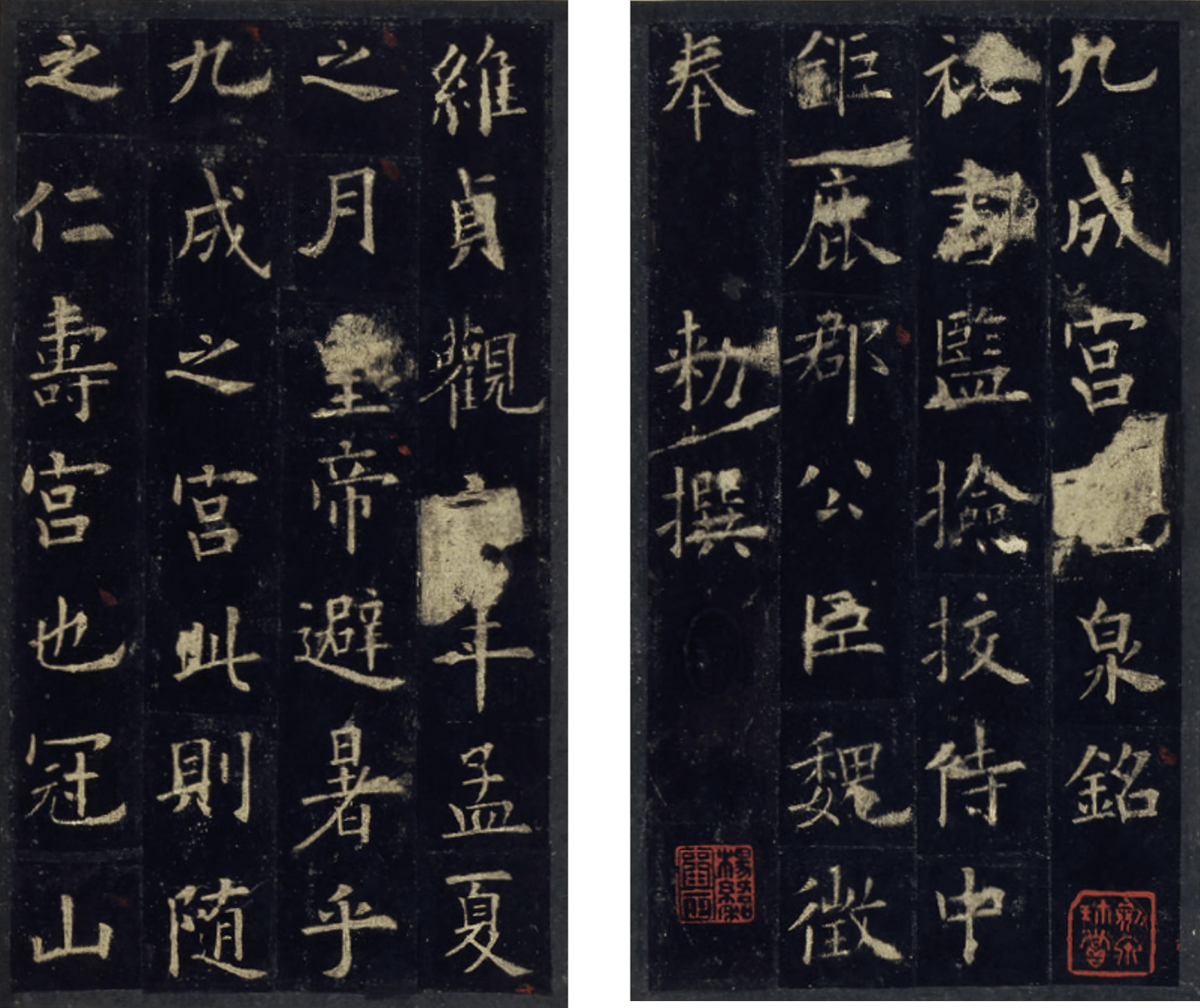 九成宮泉銘
祕書監撿挍侍中
鉅鹿郡公臣魏徵
奉 勑撰
維貞觀六年孟夏
之月皇帝避暑乎
九成之宮此則随
之仁壽宮也冠山